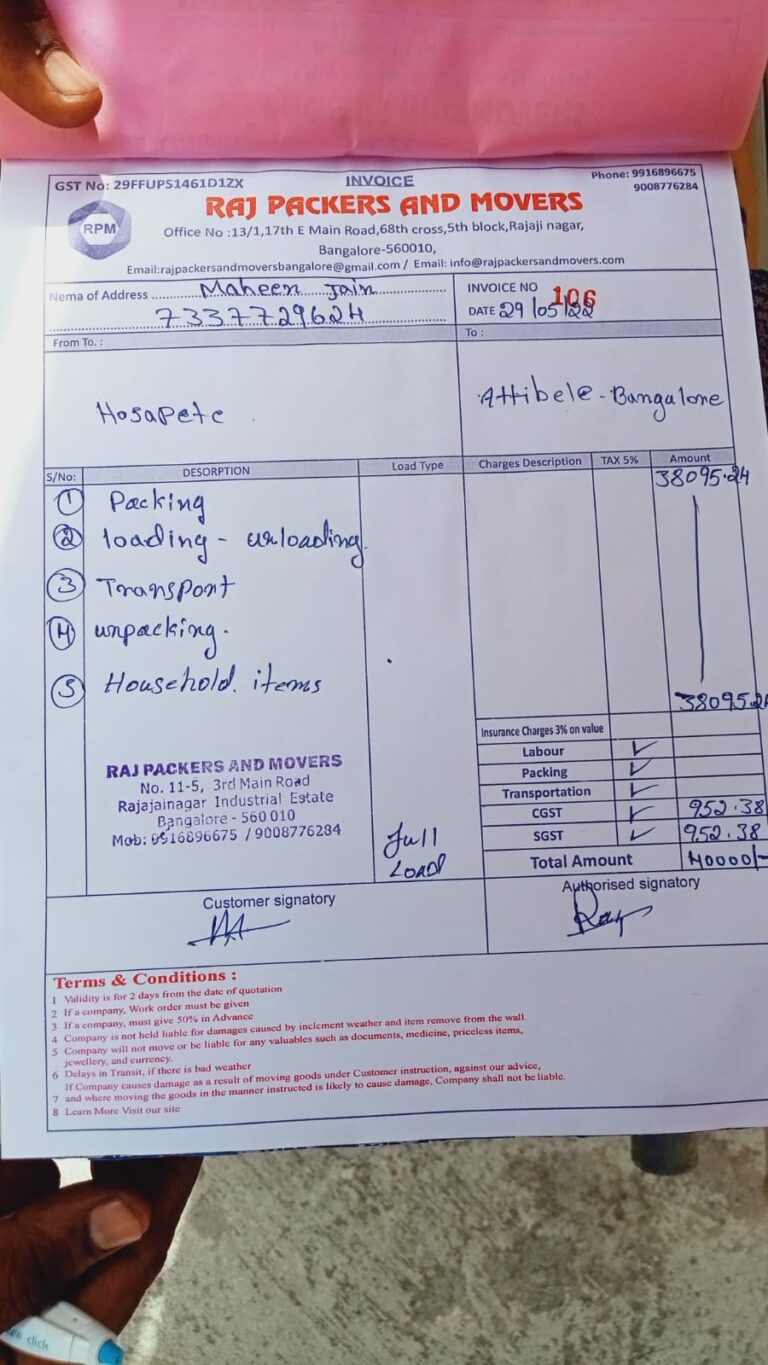 GST No: 29FFUPS1461D1ZX
INVOICE
Phone: 9916896675
9008776284
RPM
RAJ PACKERS AND MOVERS
Office No :13/1,17th E Main Road,68th cross,5th block,Rajaji nagar,
Bangalore-560010,
Email:rajpackersandmoversbangalore@gmail.com / Email: info@rajpackersandmovers.com
Nema of Address Maheen Jain
7337729624
INVOICE NO 106
DATE 29/05/22
From To. :
To :
Hosapete
Attibele - Bangalore
S/No: DESORPTION Load Type Charges Description TAX 5% Amount
38095.24
1 Packing
2 loading - unloading.
3 Transport
4 unpacking.
5 Household. items
38095.24
Insurance Charges 3% on value
Labour ✓
Packing ✓
Transportation ✓
CGST ✓ 952.38
SGST ✓ 952.38
Total Amount 40000/-
RAJ PACKERS AND MOVERS
No. 11-5, 3rd Main Road
Rajajainagar Industrial Estate
Bangalore - 560 010
Mob: 9916896675 / 9008776284
Full
Load
Customer signatory
Authorised signatory
Raj
Terms & Conditions :
1 Validity is for 2 days from the date of quotation
2 If a company, Work order must be given
3 If a company, must give 50% in Advance
4 Company is not held liable for damages caused by inclement weather and item remove from the wall.
5 Company will not move or be liable for any valuables such as documents, medicine, priceless items,
jewellery, and currency.
6 Delays in Transit, if there is bad weather
If Company causes damage as a result of moving goods under Customer instruction, against our advice,
7 and where moving the goods in the manner instructed is likely to cause damage, Company shall not be liable.
8 Learn More Visit our site